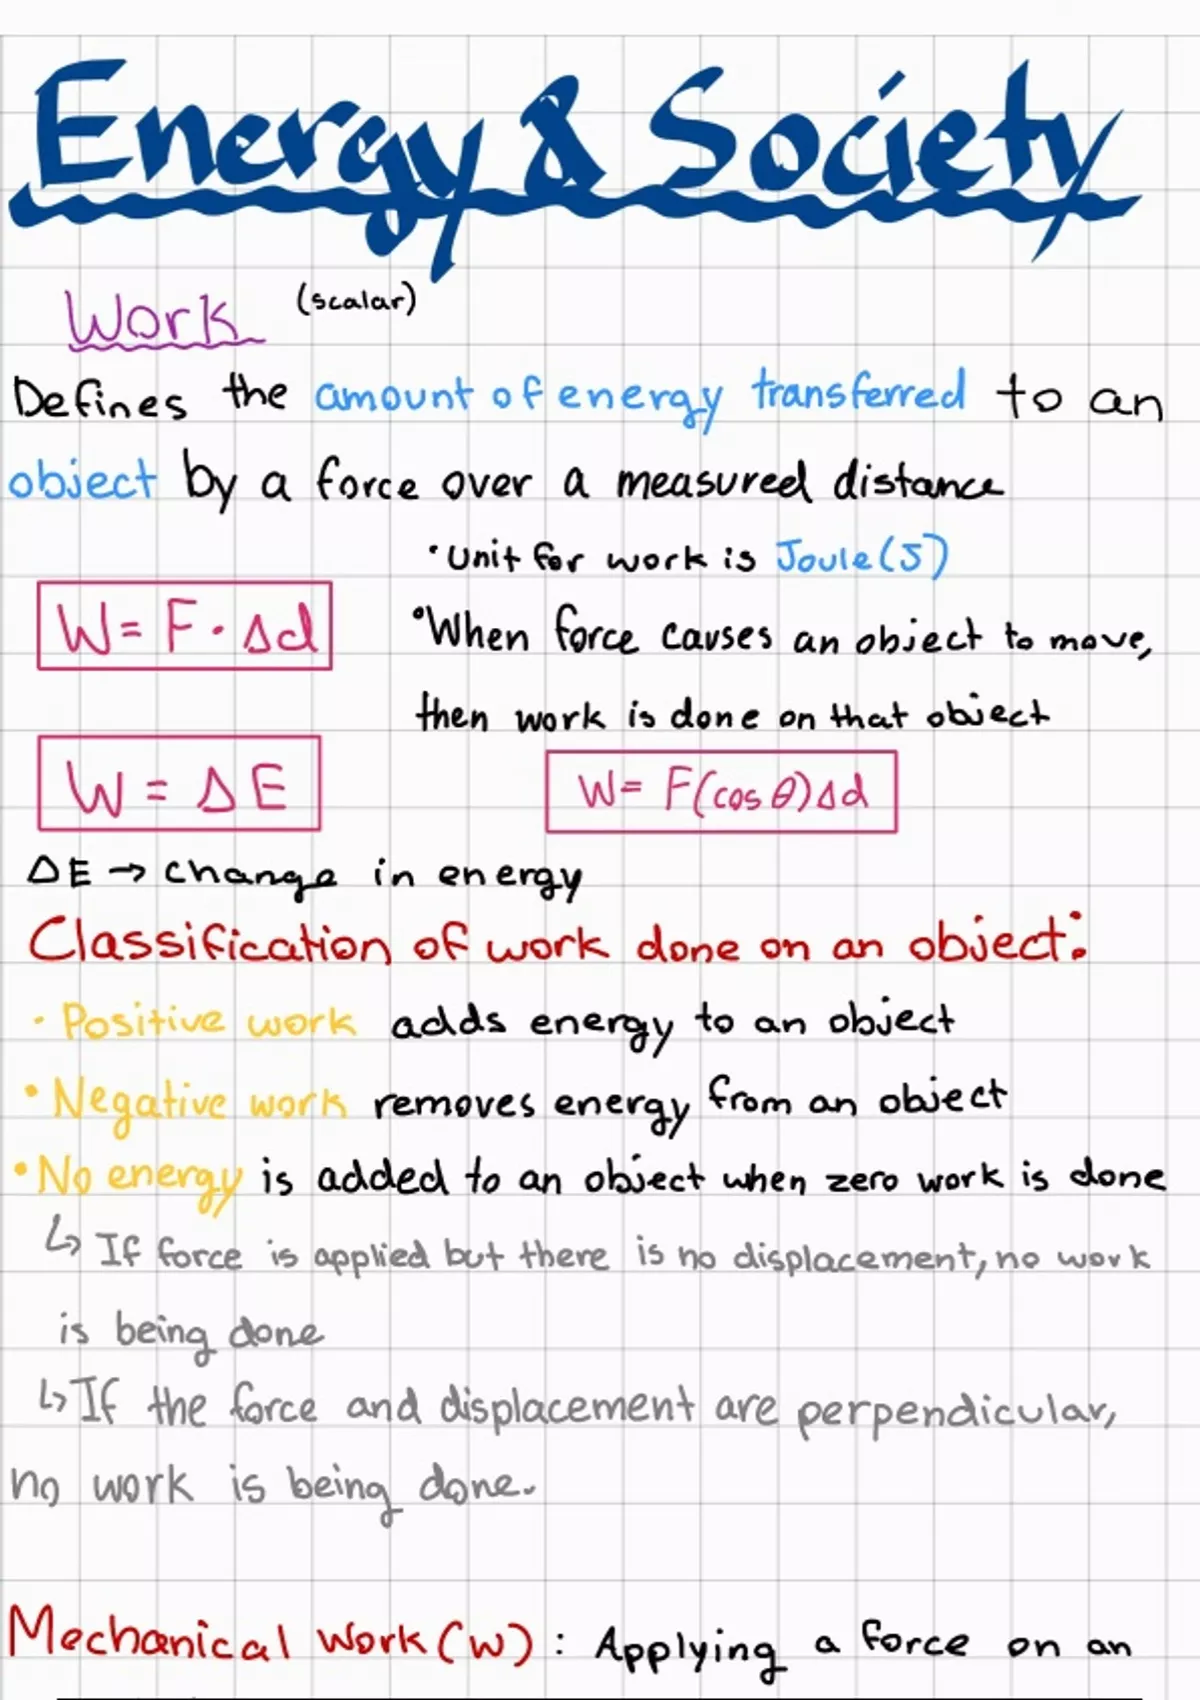 Energy & Society
Work (scalar)
Defines the amount of energy transferred to an
object by a force over a measured distance
• Unit for work is Joule (J)
W = F • Δd
• When force causes an object to move,
then work is done on that object
W = ΔE
W = F(cos θ)Δd
ΔE → change in energy
Classification of work done on an object:
• Positive work adds energy to an object
• Negative work removes energy from an object
• No energy is added to an object when zero work is done
↳ If force is applied but there is no displacement, no work
is being done
↳ If the force and displacement are perpendicular,
no work is being done.
Mechanical Work (W) : Applying a force on an